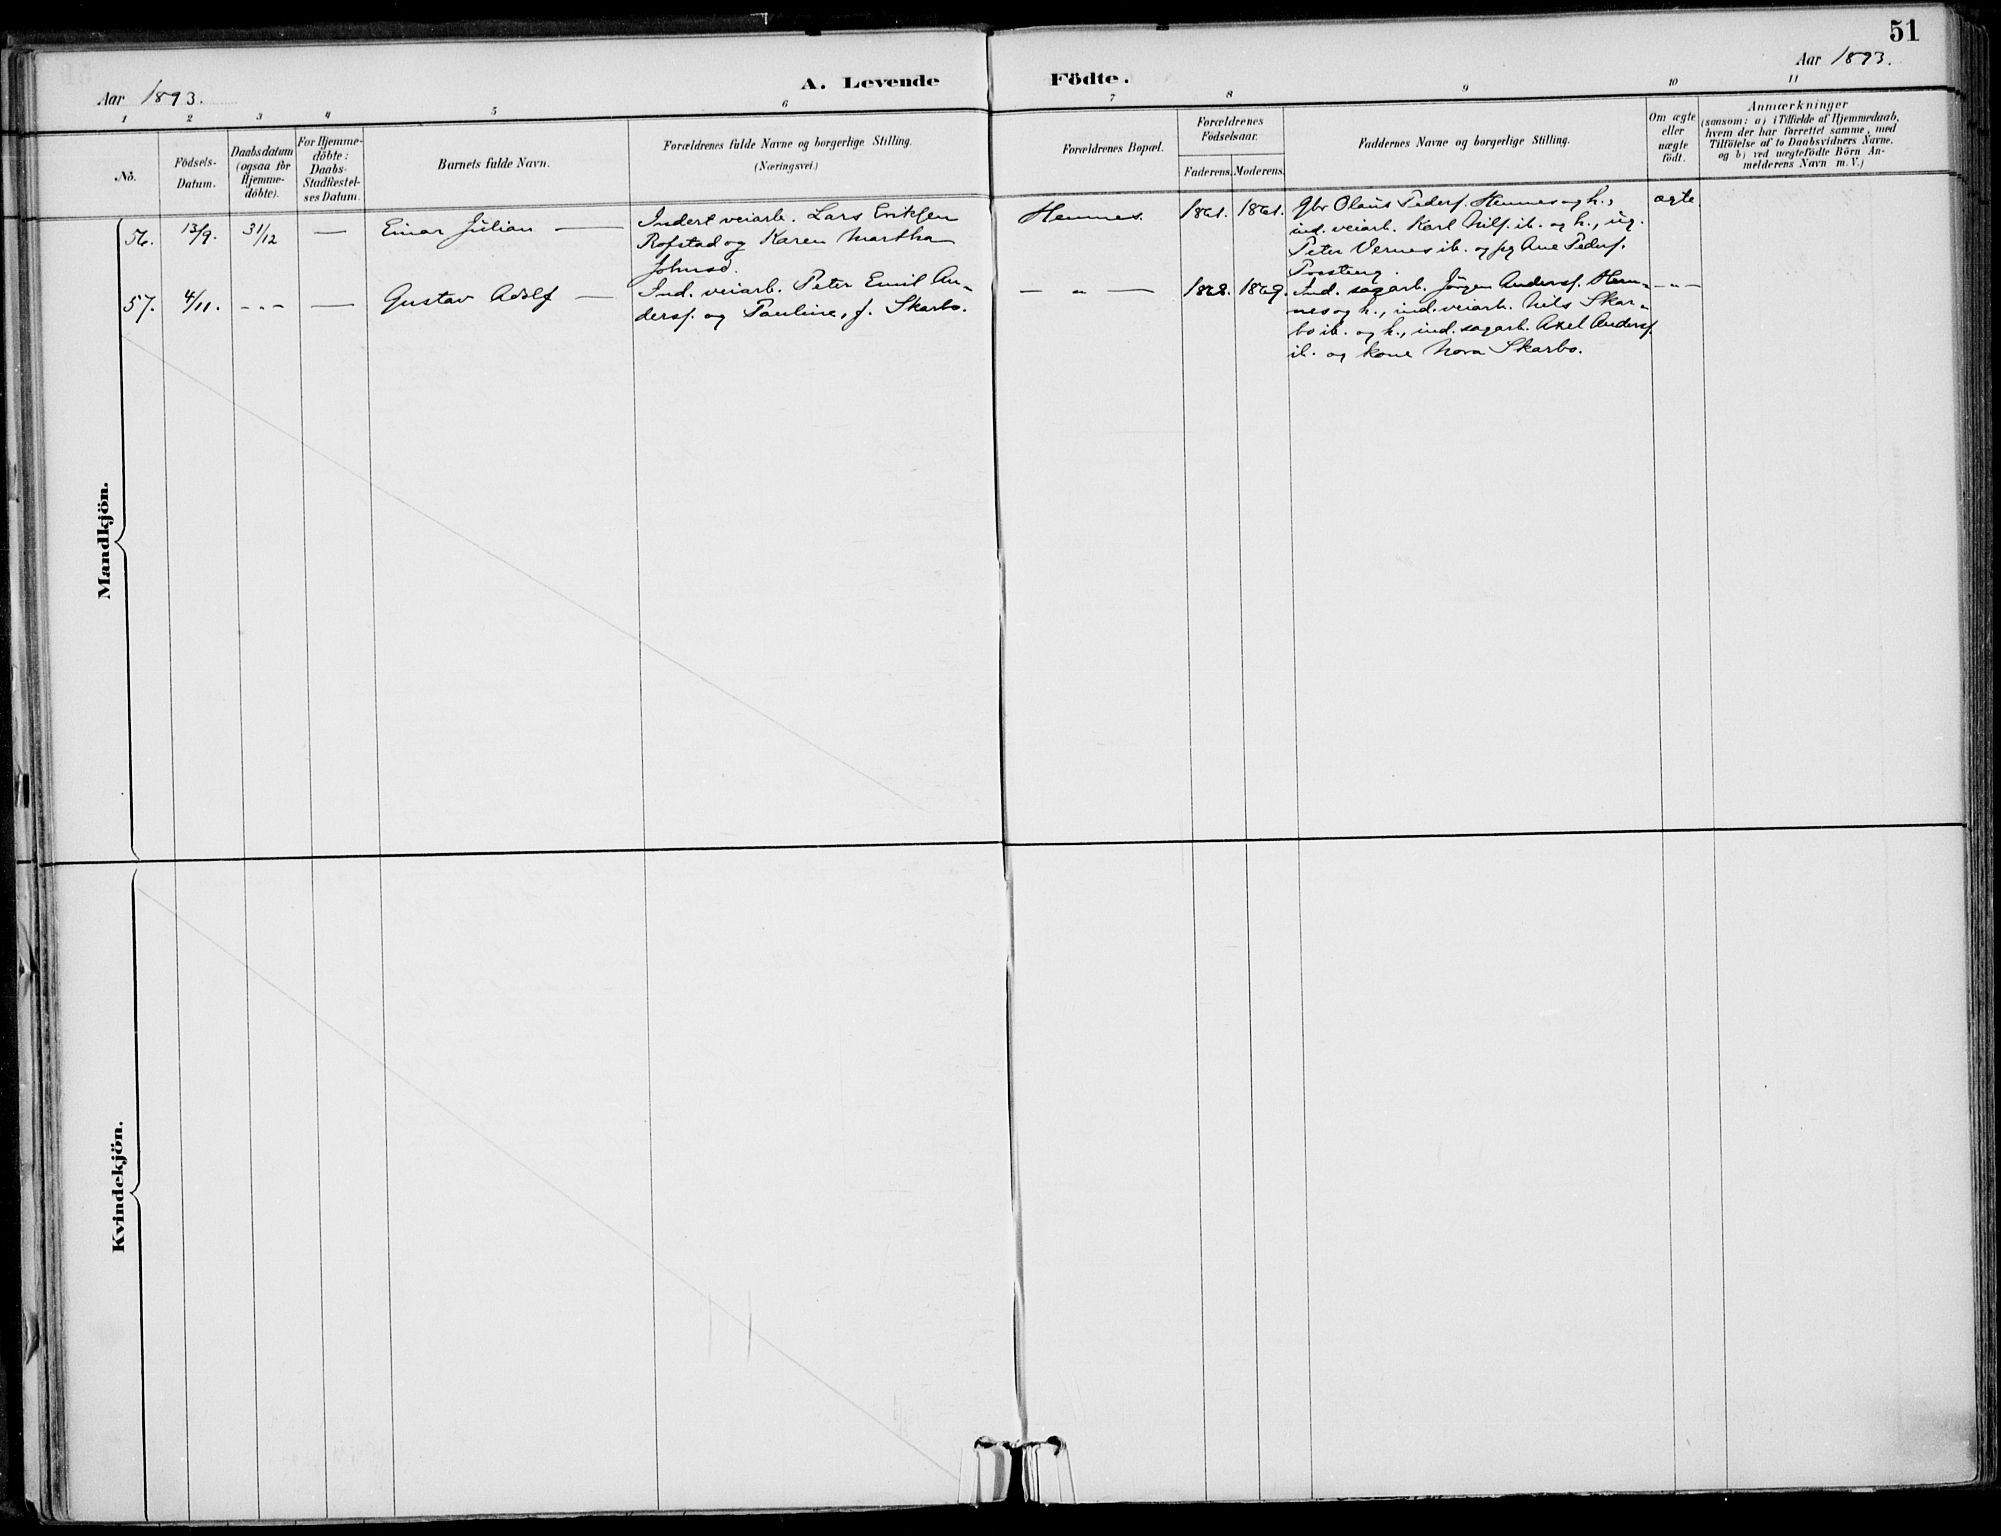 51
Aar 1893.
A. Levende Födte.
Aar 1893.
1 2 3 4 5 6 7 8 9 10 11
No.
Födsels-
Datum.
Daabsdatum
(ogsaa for
Hjemme-
döbte).
For Hjemme-
döbte:
Daabs-
Stadfæstel-
ses Datum.
Barnets fulde Navn.
Forældrenes fulde Navne og borgerlige Stilling.
(Næringsvei.)
Forældrenes Bopæl.
Forældrenes
Födselsaar.
Faderens. Moderens.
Faddernes Navne og borgerlige Stilling.
Om ægte
eller
uægte
födt.
Anmærkninger
(saasom: a) i Tilfælde af Hjemmedaab,
hvem der har forrettet samme, med
Tilföielse af to Daabsvidners Navne,
og b) ved uægtefödte Börn An-
melderens Navn m. V.)
Mandkjön.
56. 13/9. 31/12 — Einar Julian —
Inderst veiarb. Lars Eriksen
Rofstad og Karen Martha
Johnsd.
Hemnes. 1861. 1861.
Gbr Olaus Peders. Hemnes og h.,
ind. veiarb. Karl Nils. ib. og h., ug.
Peter Vernes ib. og pg Ane Peders.
ægte
57. 4/11. -"- — Gustav Adolf —
Ind. veiarb. Peter Emil An-
ders. og Pauline, f. Skarbo.
— " — 1868. 1869.
Ind. sagarb. Jörgen Anders. Hem-
nes og h., ind. veiarb. Nils Skar-
bo ib. og h., ind. sagarb. Axel Anders.
ib. og kone Nora Skarbo.
-"-
Kvindekjön.